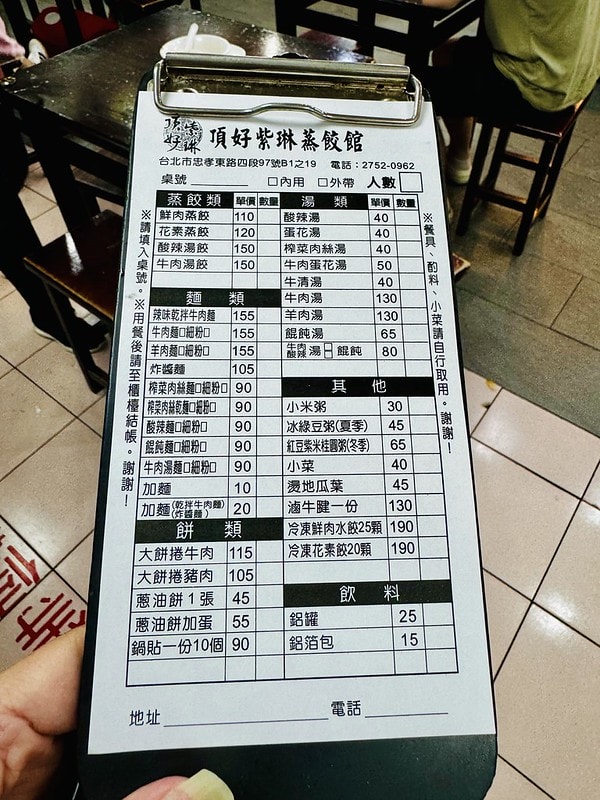 頂好紫琳
頂好紫琳蒸餃館
台北市忠孝東路四段97號B1之19 電話：2752-0962
桌號 □內用 □外帶 人數
※請填入桌號。※用餐後請至櫃檯結帳。謝謝！
蒸餃類 單價 數量
鮮肉蒸餃 110
花素蒸餃 120
酸辣湯餃 150
牛肉湯餃 150
麵類
辣味乾拌牛肉麵 155
牛肉麵□細粉□ 155
羊肉麵□細粉□ 155
炸醬麵 105
榨菜肉絲麵□細粉□ 90
榨菜肉絲乾麵□細粉□ 90
酸辣麵□細粉□ 90
餛飩麵□細粉□ 90
牛肉湯麵□細粉□ 90
加麵 10
加麵(乾拌牛肉麵 炸醬麵) 20
餅類
大餅捲牛肉 115
大餅捲豬肉 105
蔥油餅1張 45
蔥油餅加蛋 55
鍋貼一份10個 90
湯類 單價 數量
酸辣湯 40
蛋花湯 40
榨菜肉絲湯 40
牛肉蛋花湯 50
牛清湯 40
牛肉湯 130
羊肉湯 130
餛飩湯 65
牛肉 酸辣 湯□□餛飩 80
其他
小米粥 30
冰綠豆粥(夏季) 45
紅豆紫米桂圓粥(冬季) 65
小菜 40
燙地瓜葉 45
滷牛腱一份 130
冷凍鮮肉水餃25顆 190
冷凍花素餃20顆 190
飲料
鋁罐 25
鋁箔包 15
※餐具、酌料、小菜請自行取用。謝謝！
地址 電話